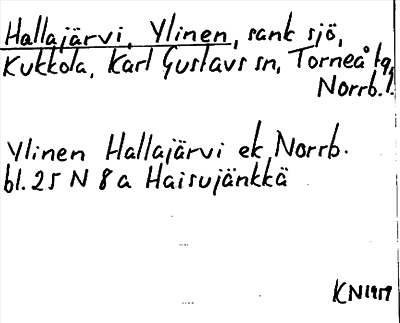 Hallajärvi, Ylinen, sank sjö,
Kukkola, Karl Gustavs sn, Torneå tg,
Norrb. l.
Ylinen Hallajärvi ek, Norrb.
bl. 25 N 8 a Haisujänkkä
KN 1959